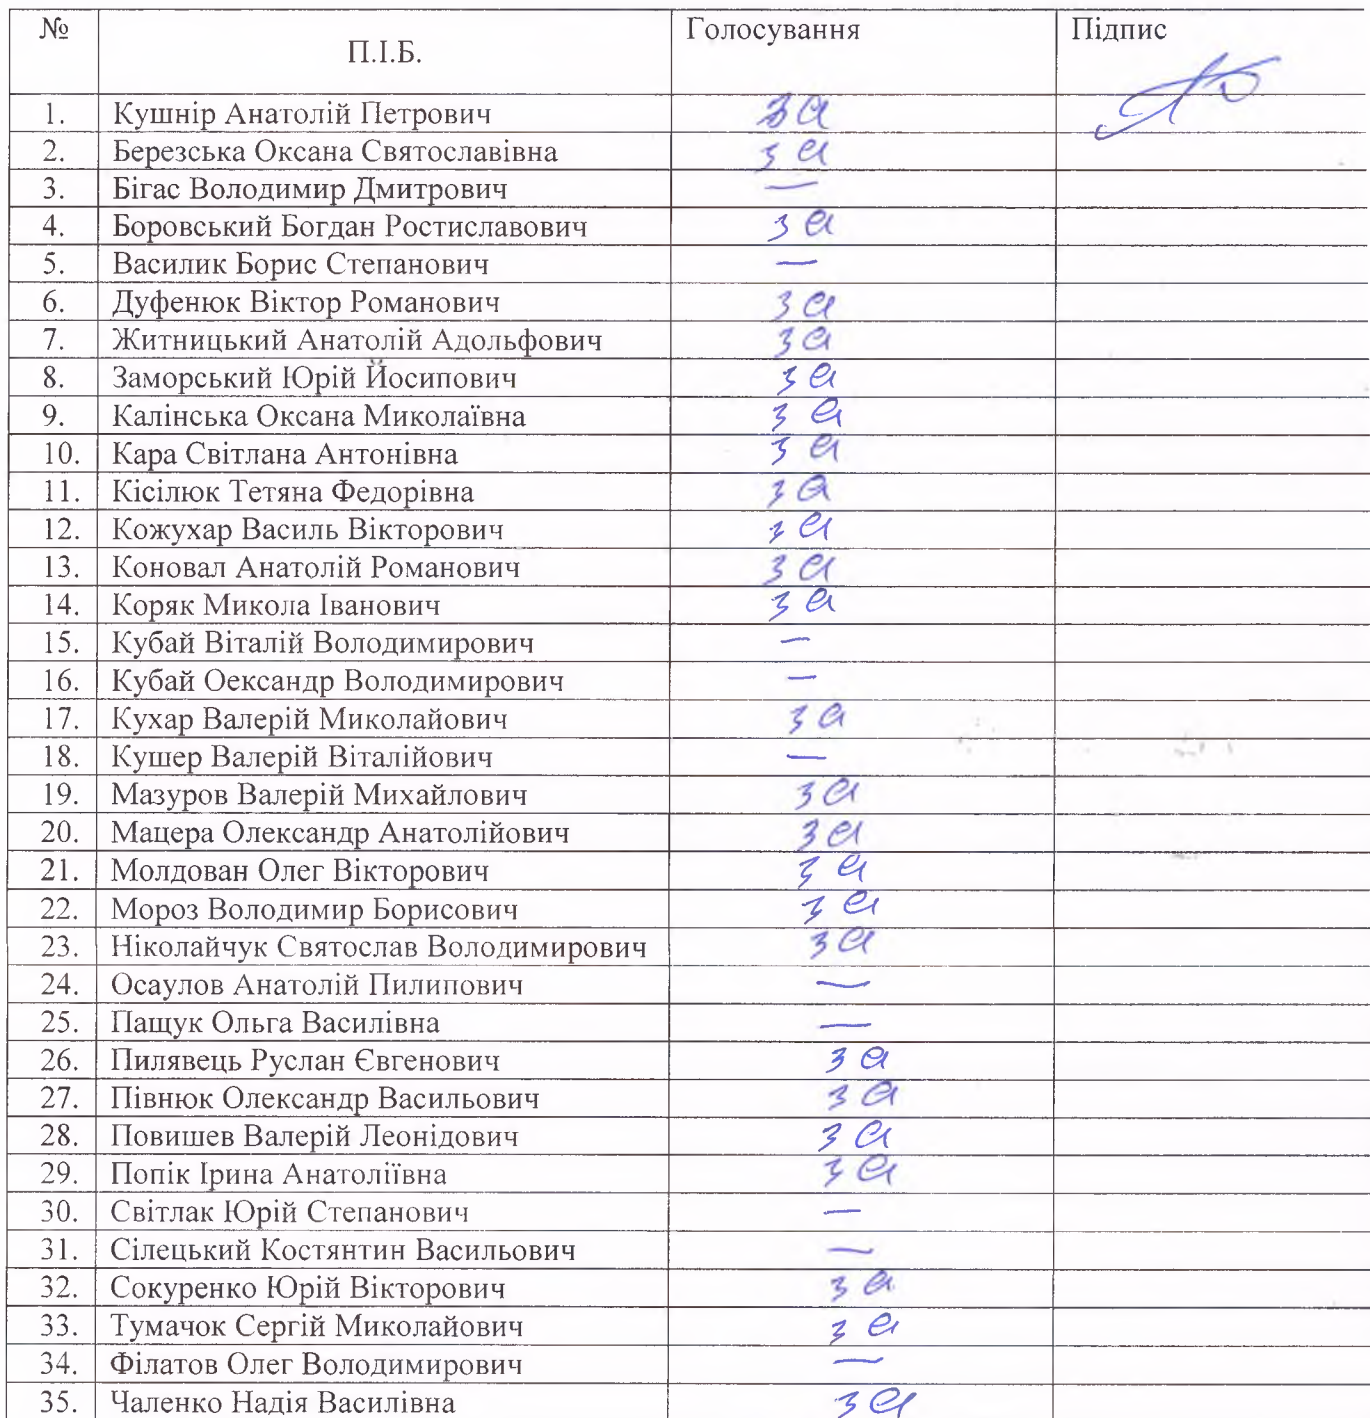 № П.І.Б. Голосування Підпис
1. Кушнір Анатолій Петрович за
2. Березська Оксана Святославівна за
3. Бігас Володимир Дмитрович —
4. Боровський Богдан Ростиславович за
5. Василик Борис Степанович —
6. Дуфенюк Віктор Романович за
7. Житницький Анатолій Адольфович за
8. Заморський Юрій Йосипович за
9. Калінська Оксана Миколаївна за
10. Кара Світлана Антонівна за
11. Кісілюк Тетяна Федорівна за
12. Кожухар Василь Вікторович за
13. Коновал Анатолій Романович за
14. Коряк Микола Іванович за
15. Кубай Віталій Володимирович —
16. Кубай Оександр Володимирович —
17. Кухар Валерій Миколайович за
18. Кушер Валерій Віталійович —
19. Мазуров Валерій Михайлович за
20. Мацера Олександр Анатолійович за
21. Молдован Олег Вікторович за
22. Мороз Володимир Борисович за
23. Ніколайчук Святослав Володимирович за
24. Осаулов Анатолій Пилипович —
25. Пащук Ольга Василівна —
26. Пилявець Руслан Євгенович за
27. Півнюк Олександр Васильович за
28. Повишев Валерій Леонідович за
29. Попік Ірина Анатоліївна за
30. Світлак Юрій Степанович —
31. Сілецький Костянтин Васильович —
32. Сокуренко Юрій Вікторович за
33. Тумачок Сергій Миколайович за
34. Філатов Олег Володимирович —
35. Чаленко Надія Василівна за